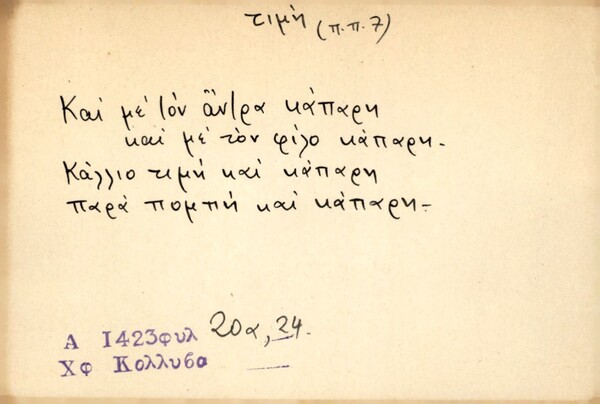 τιμή (π.π.7)
Καί μέ τόν ἄντρα κάπαρη
καί μέ τὸν φίλο κάπαρη.
Κάλλιο τιμή καί κάπαρη
παρά πομπή καί κάπαρη-
Α 1423φυλ 20α, 24.
Χφ Κολλυβα